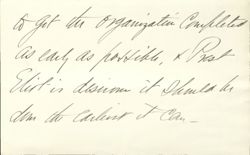 to get the organization completed
as early as possible, & Prest
Eliot is desirous it should be
done the earliest it can—